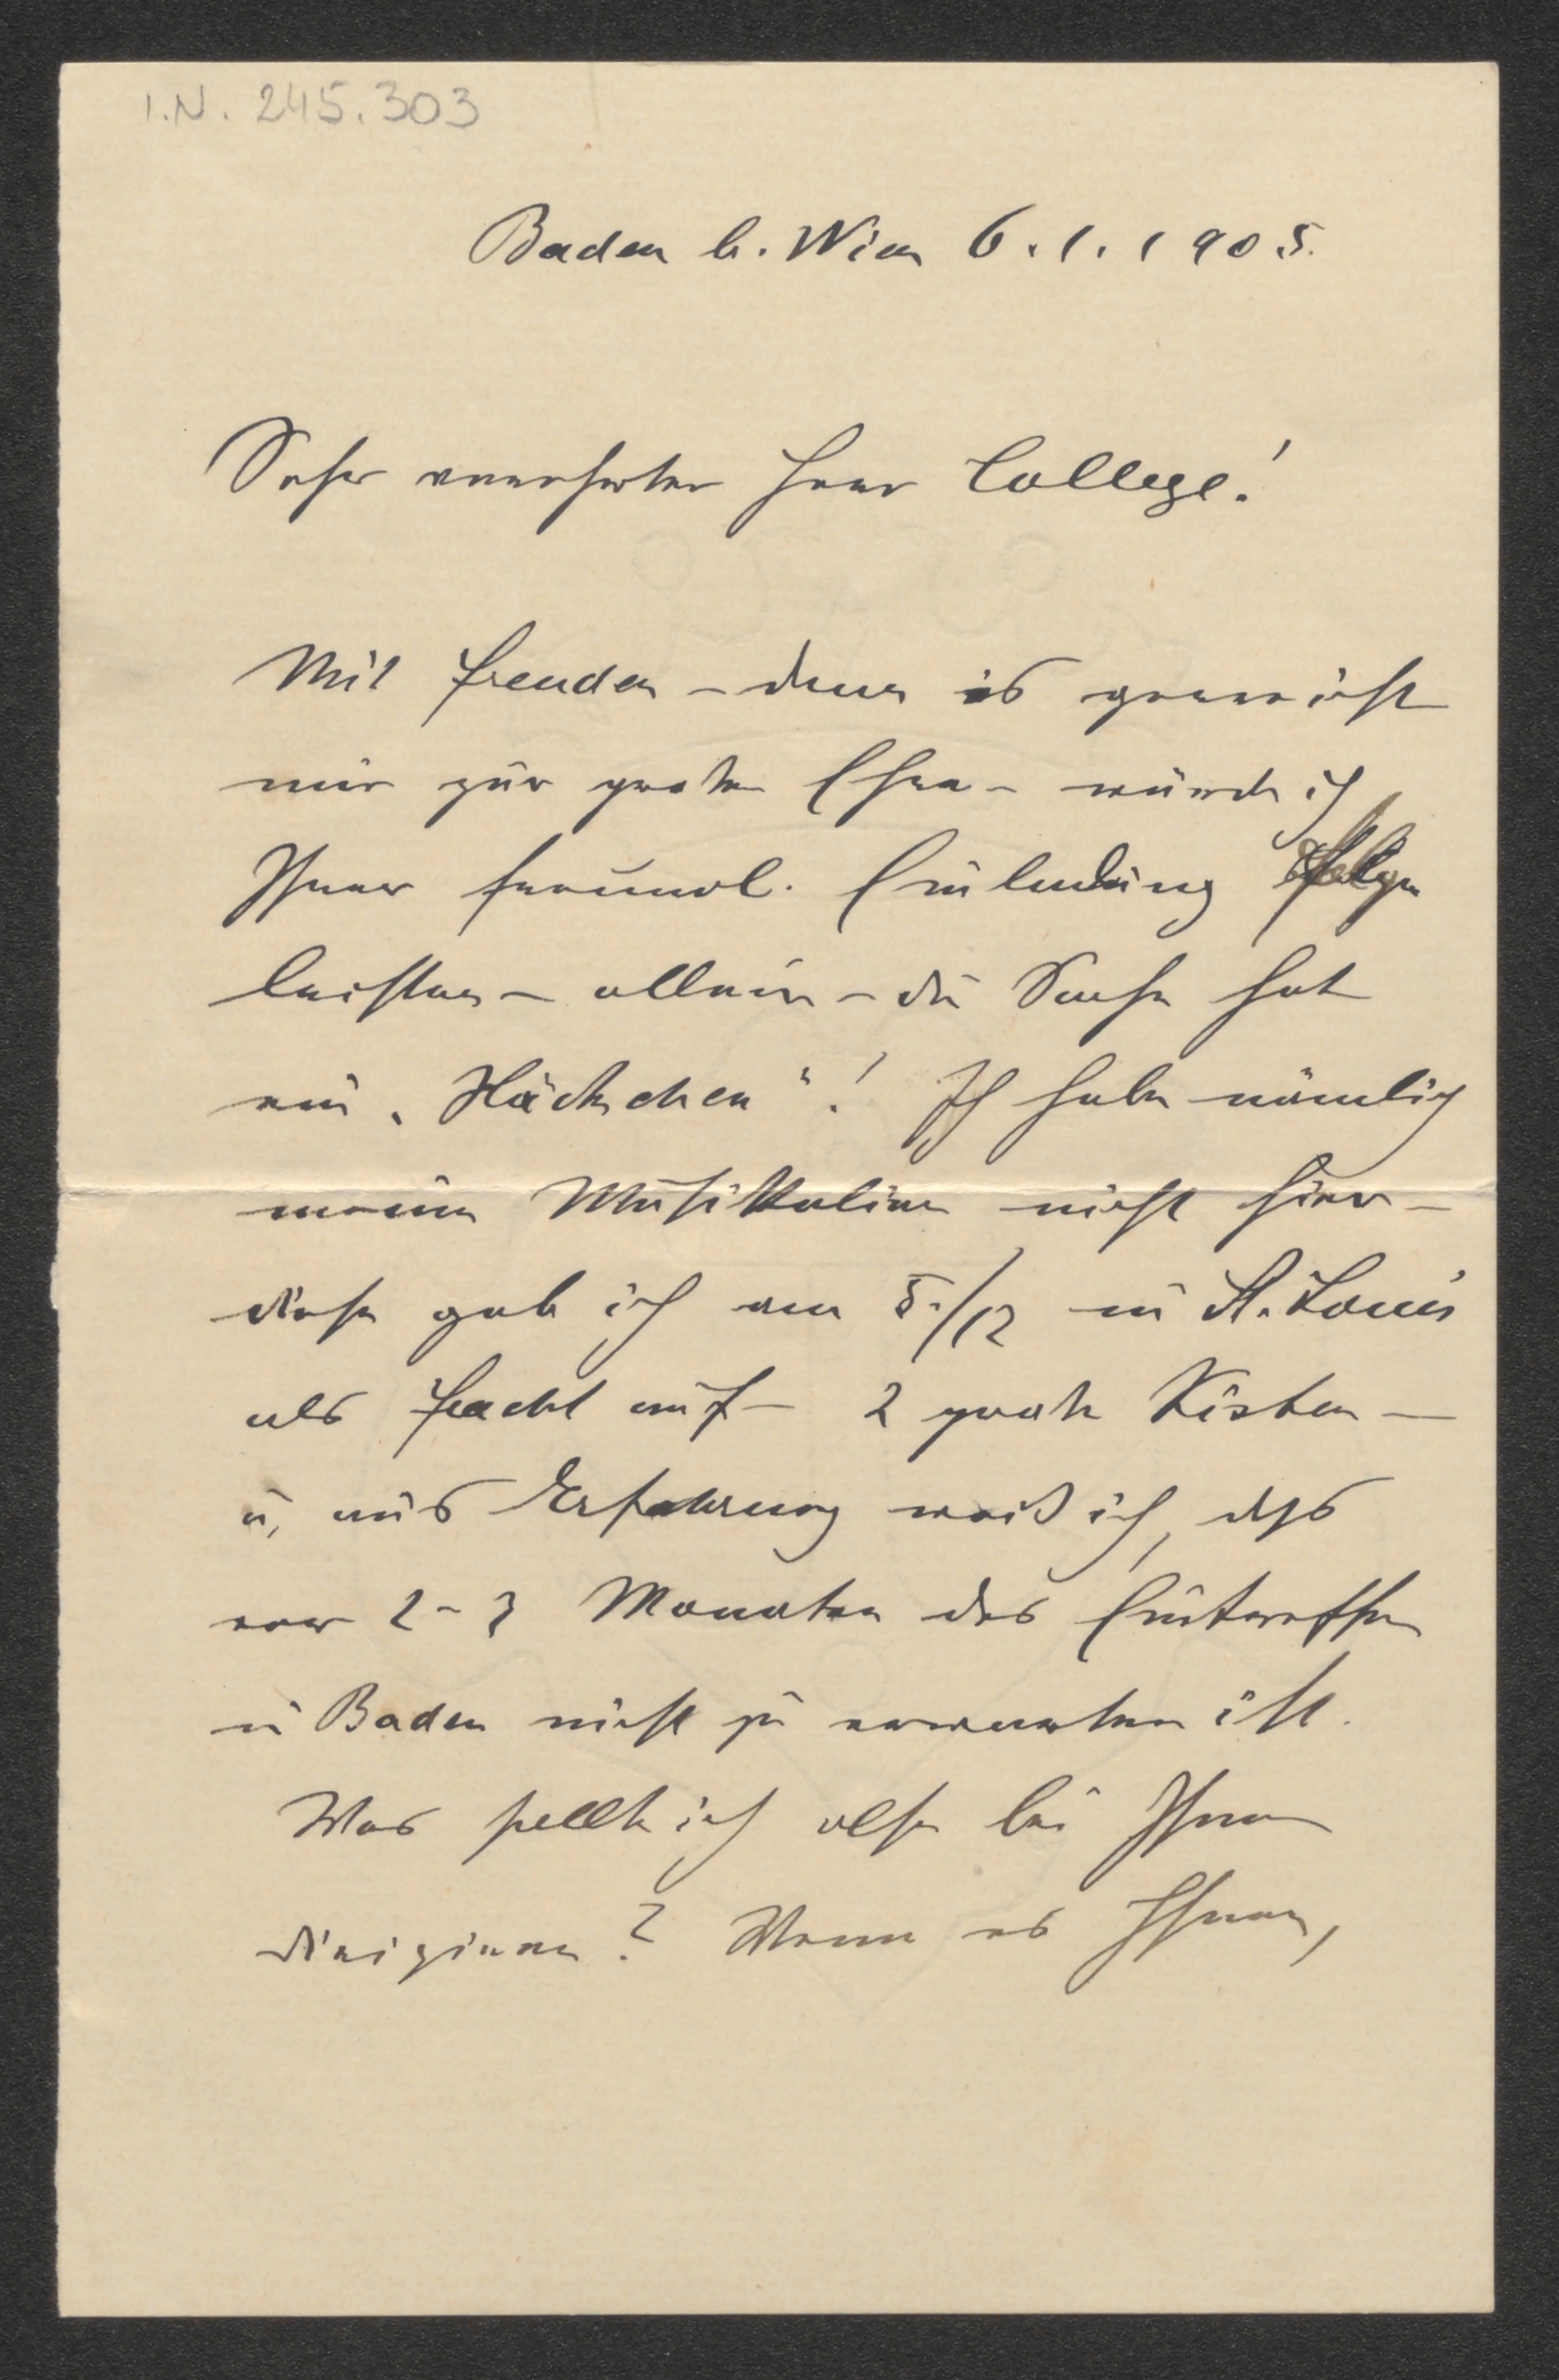 I.N. 245.303
Baden b. Wien 6.1.1905.
Sehr verehrter Herr College!
Mit Freuden – denn es gereicht
mir zur großen Ehre – würde ich
Ihrer freundl. Einladung Folge
leisten – allein – die Sache hat
ein „Häckchen“! Ich habe nämlich
meine Musikalien nicht hier –
diese gab ich am 5./12 in St. Louis
als Fracht auf – 2 große Kisten –
u. aus Erfahrung weiß ich, daß
vor 2-3 Monaten das Eintreffen
in Baden nicht zu erwarten ist.
Was sollte ich also bei Ihnen
dirigieren? Wenn es Ihnen,